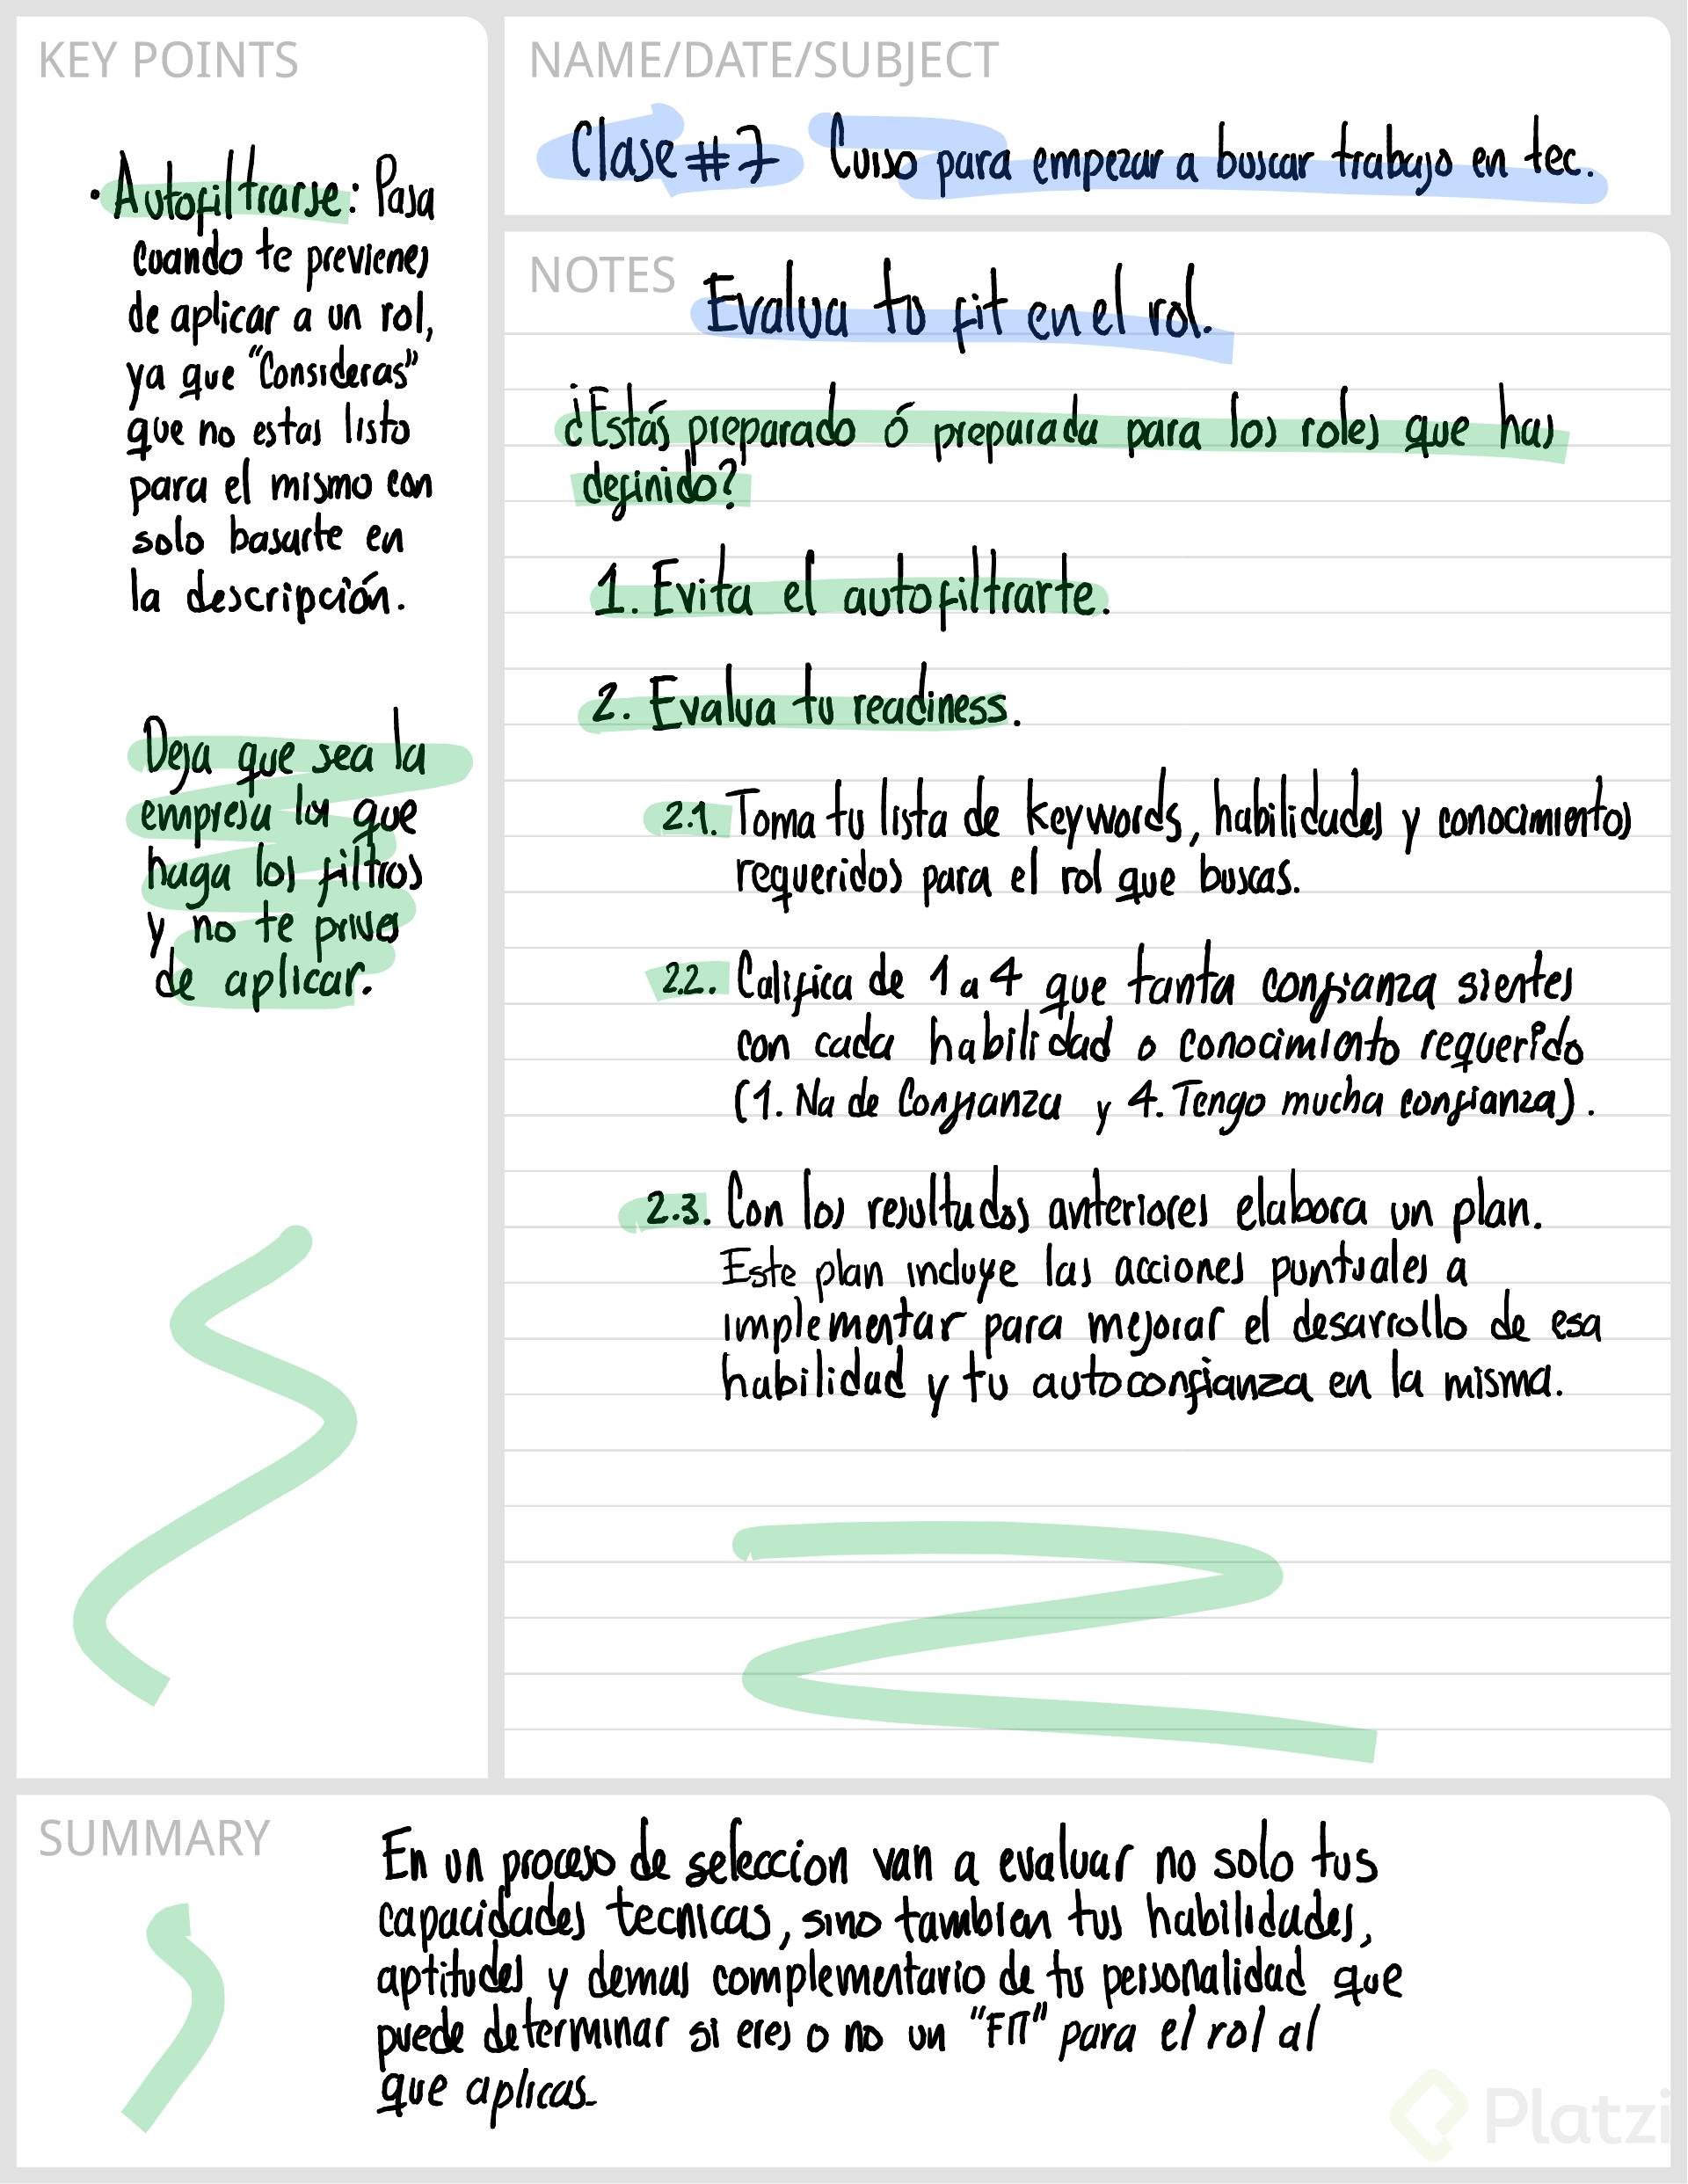 KEY POINTS
• Autofiltrarse: Pasa
cuando te previenes
de aplicar a un rol,
ya que "Consideras"
que no estas listo
para el mismo con
solo basarte en
la descripción.
Deja que sea la
empresa la que
haga los filtros
y no te prives
de aplicar.
NAME/DATE/SUBJECT
Clase #7 Curso para empezar a buscar trabajo en tec.
NOTES
Evalua tu fit en el rol.
¿Estás preparado ó preparada para los roles que has
definido?
1. Evita el autofiltrarte.
2. Evalua tu readiness.
2.1. Toma tu lista de keywords, habilidades y conocimientos
requeridos para el rol que buscas.
2.2. Califica de 1 a 4 que tanta confianza sientes
con cada habilidad o conocimiento requerido
(1. Na de Confianza y 4. Tengo mucha confianza).
2.3. Con los resultados anteriores elabora un plan.
Este plan incluye las acciones puntuales a
implementar para mejorar el desarrollo de esa
habilidad y tu autoconfianza en la misma.
SUMMARY
En un proceso de seleccion van a evaluar no solo tus
capacidades tecnicas, sino tambien tus habilidades,
aptitudes y demas complementario de tu personalidad que
puede determinar si eres o no un "FIT" para el rol al
que aplicas.
Platzi